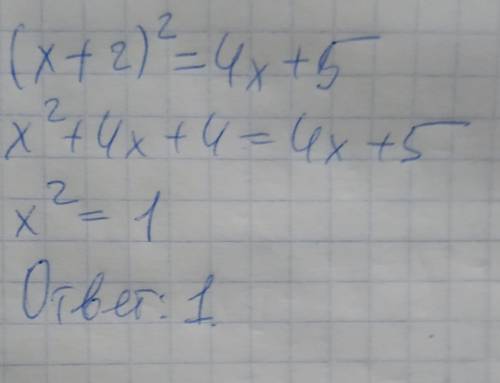 (x+2)²=4x+5
x²+4x+4=4x+5
x²=1
Ответ: 1.